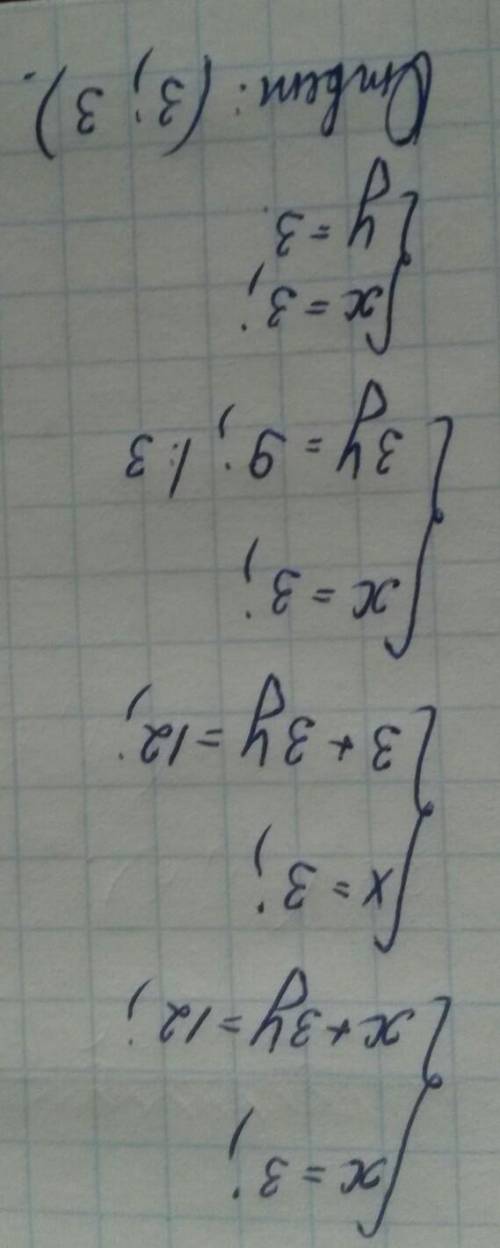 x = 3;
x + 3y = 12;
x = 3;
3 + 3y = 12;
x = 3;
3y = 9; |:3
x = 3;
y = 3.
Ответ: (3; 3).